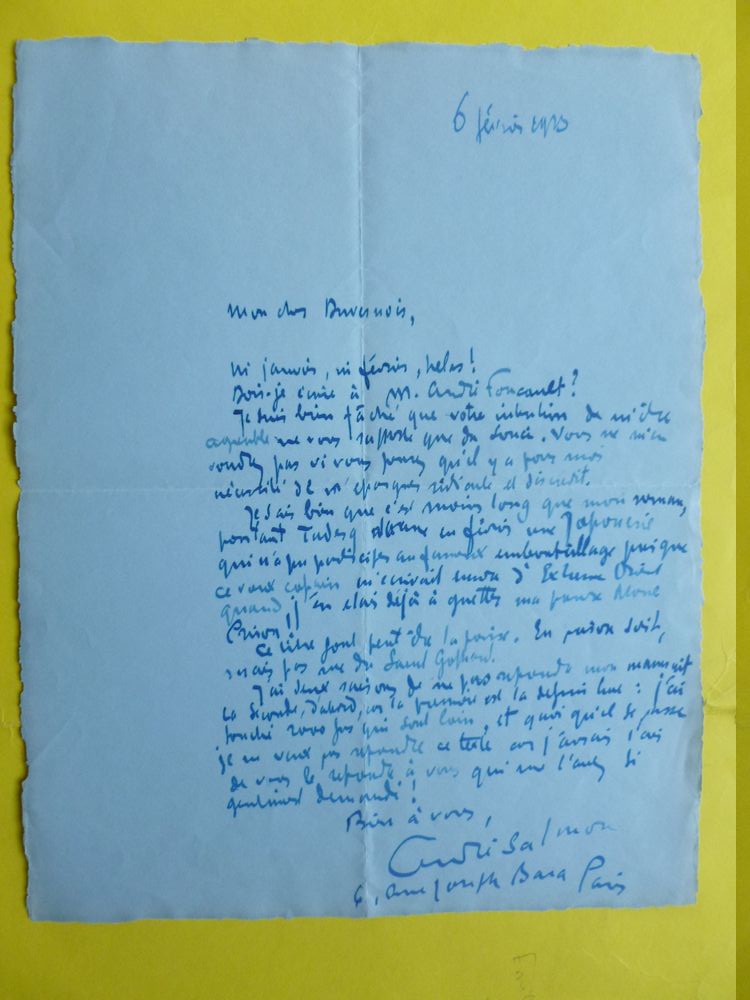 6 février 1923
Mon cher Duvernois,
Ni janvier, ni février, hélas!
Dois-je écrire à M. André Foucault?
Je suis bien fâché que votre intention de m'être
agréable ne vous rapporte que du souci. Vous ne m'en
voudrez pas si vous pensez qu'il y a pour moi
nécessité de
Je sais bien que c'est moins long que mon roman,
pourtant donne en février une Japonerie
qui n'a pu participer au fameux embouteillage puisque
ce vieux copain m'écrivait encore d'Extrême Orient
quand j'en étais déjà à guetter ma pauvre
Prison!
Ce titre font peut être la poire. En prison soit,
mais pas rue du Saint Gothard.
J'ai deux raisons de ne pas reprendre mon manuscrit
La seconde, d'abord, car la première est la depuis lue: j'ai
touché 2000 frs qui sont loin, et quoi qu'il se passe
je ne veux pas reprendre ce texte car j'aurais l'air
de vous le reprendre à vous qui me l'avez si
gentiment demandé!
Bien à vous,
André Salmon
6, rue Joseph Bara Paris